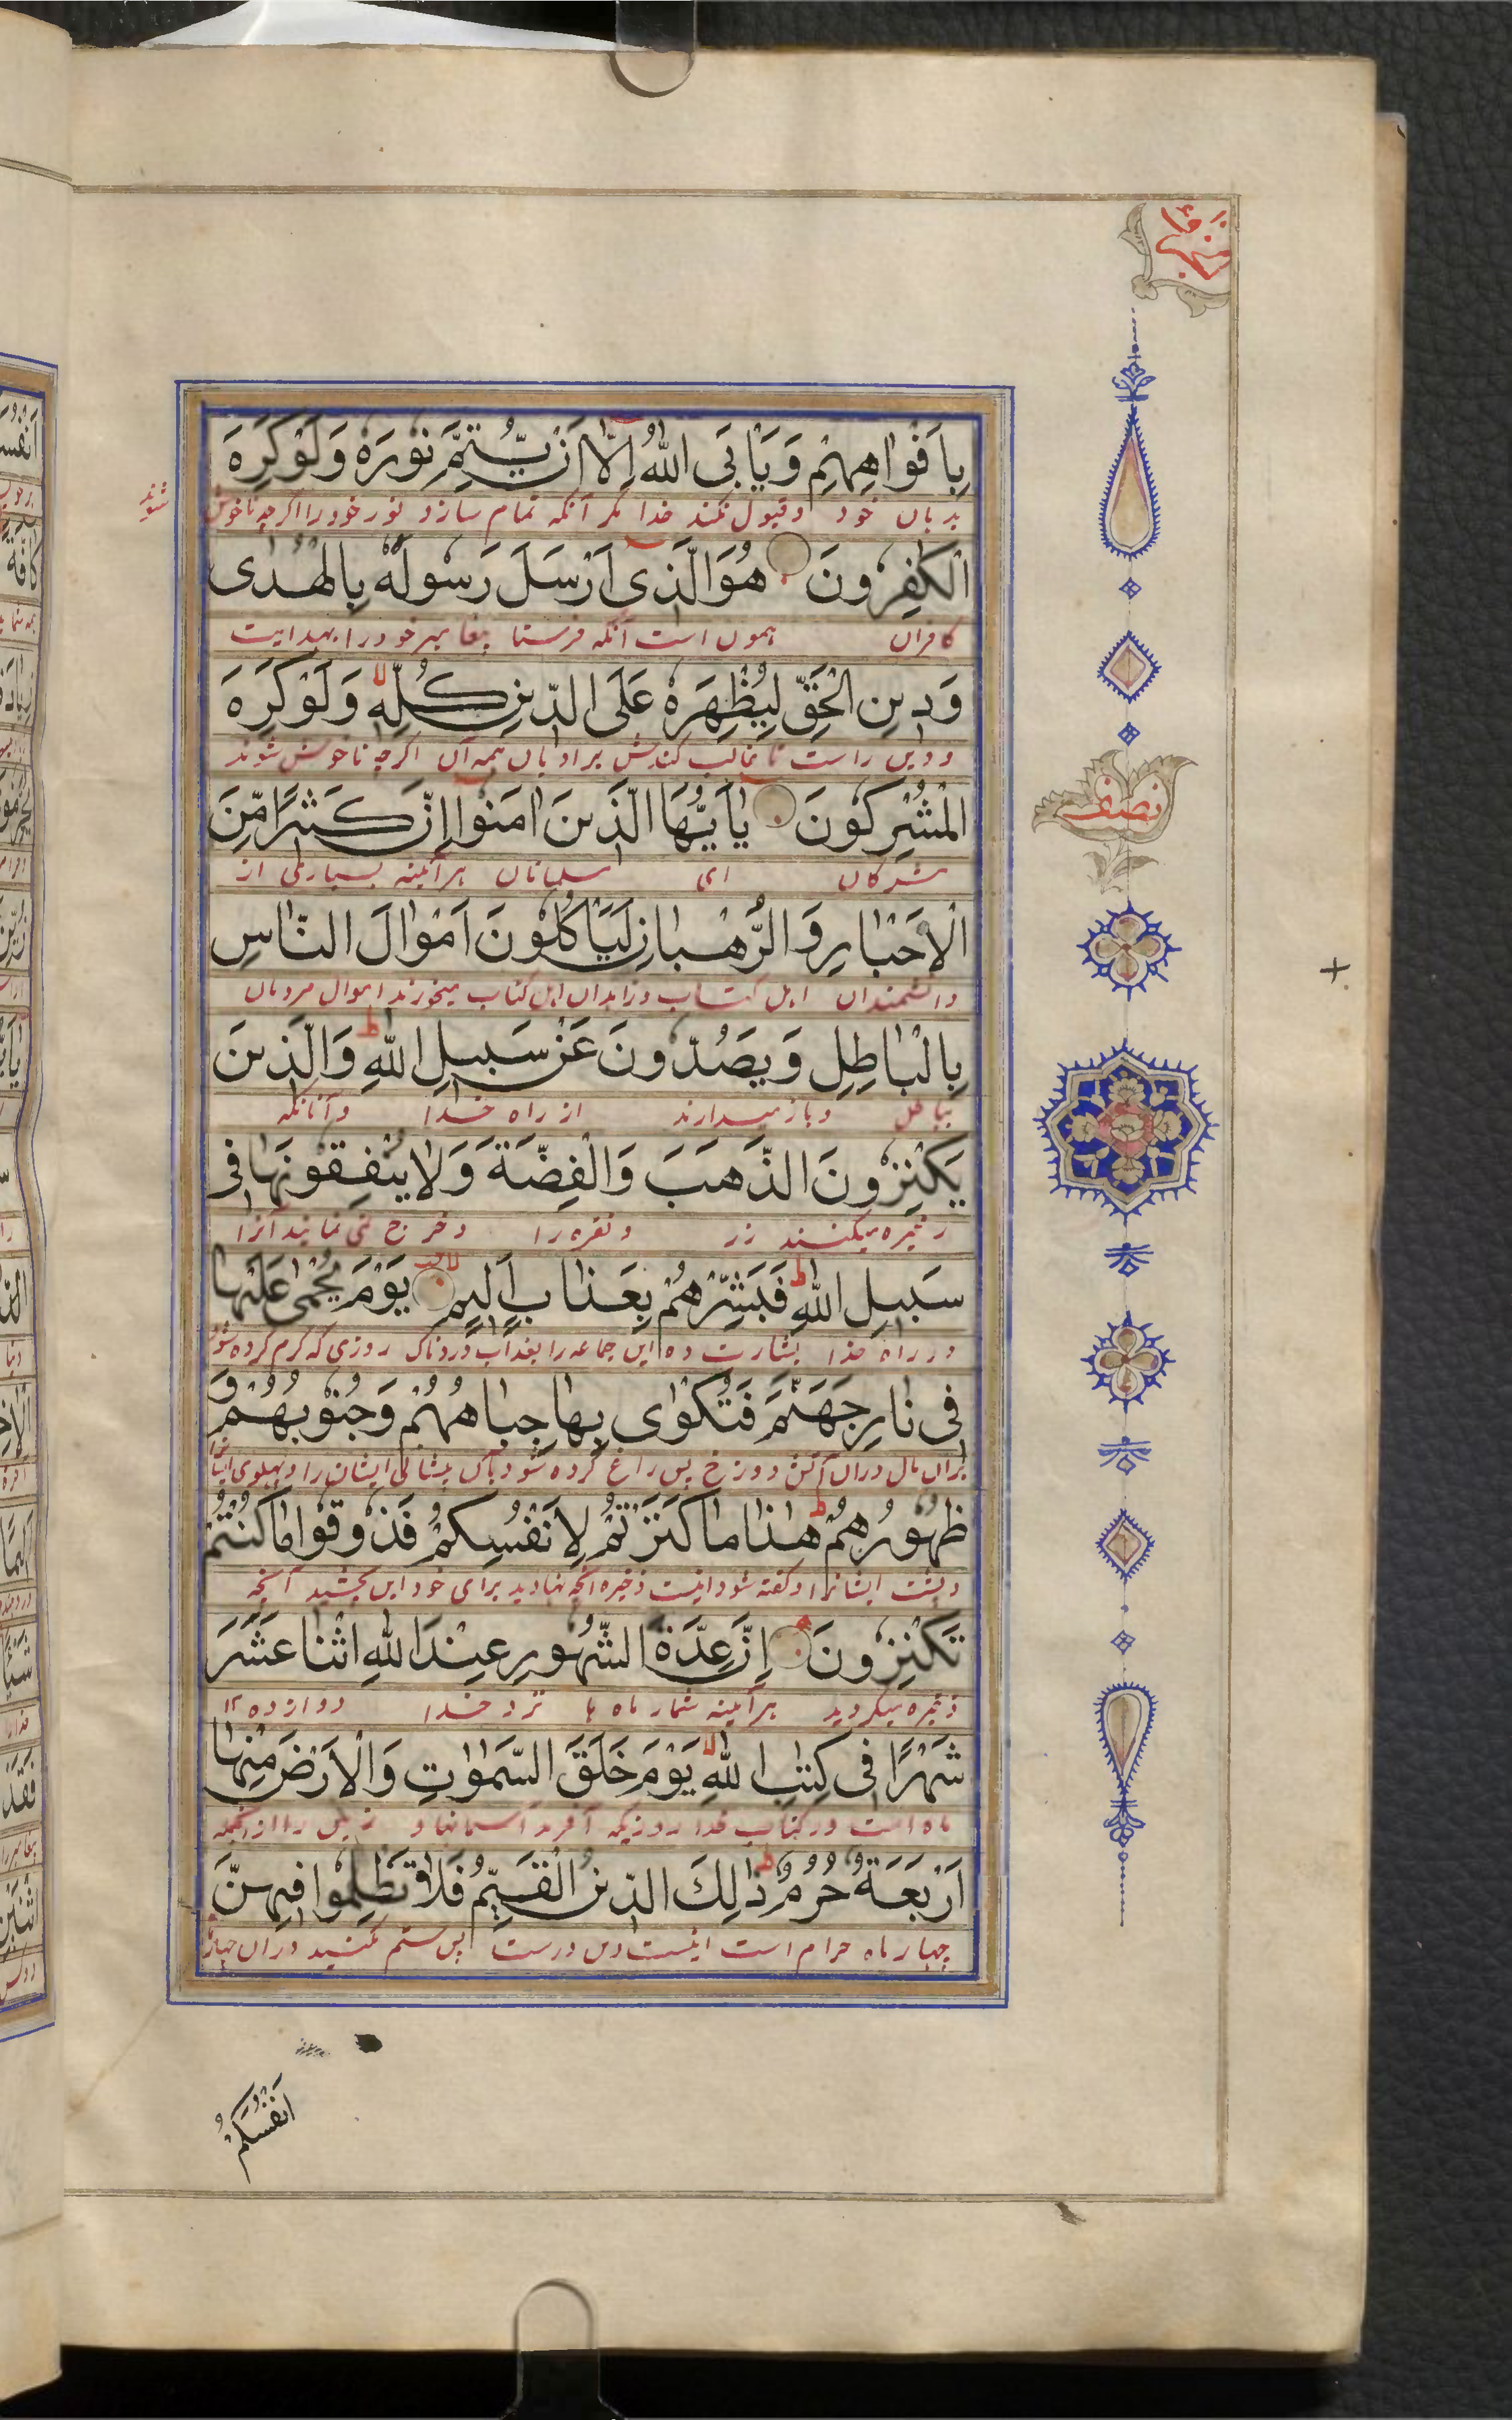 جزء ۱۰
بِاَفْوَاهِهِمْ وَيَاْبَى اللّٰهُ اِلَّا اَنْ يُّتِمَّ نُوْرَهٗ وَلَوْ كَرِهَ
بدہان خود و قبول نکند خدا مگر آنکه تمام سازد نور خود را اگرچه ناخوش شوند
الْكٰفِرُوْنَ هُوَ الَّذِیْ اَرْسَلَ رَسُوْلَهٗ بِالْهُدٰی
کافران همون است آنکه فرستا پیغامبر خود را بهدایت
وَدِیْنِ الْحَقِّ لِیُظْهِرَهٗ عَلَی الدِّیْنِ كُلِّهٖ لا وَلَوْ كَرِهَ
و دین راست تا غالب کندش بر ادیان همه آن اگرچه ناخوش شوند
الْمُشْرِكُوْنَ یٰاَیُّهَا الَّذِیْنَ اٰمَنُوْا اِنَّ كَثِیْرًا مِّنَ
نصف
مشرکان ای مسلمانان هرآئینه بسیاری از
الْاَحْبَارِ وَالرُّهْبَانِ لَیَاْكُلُوْنَ اَمْوَالَ النَّاسِ
دانشمندان اهل کتاب و زاهدان اهل کتاب میخورند اموال مردمان
بِالْبَاطِلِ وَیَصُدُّوْنَ عَنْ سَبِیْلِ اللّٰهِ ط وَالَّذِیْنَ
بباطل و باز میدارند از راه خدا و آنانکه
یَكْنِزُوْنَ الذَّهَبَ وَالْفِضَّةَ وَلَا یُنْفِقُوْنَهَا فِیْ
ذخیره میکنند زر و نقره را و خرج نمی نمایند آنرا
سَبِیْلِ اللّٰهِ ط فَبَشِّرْهُمْ بِعَذَابٍ اَلِیْمٍ یَوْمَ یُحْمٰی عَلَیْهَا
در راه خدا بشارت ده این جماعه را بعذاب دردناک روزی که گرم کرده شود
فِیْ نَارِ جَهَنَّمَ فَتُكْوٰی بِهَا جِبَاهُهُمْ وَجُنُوْبُهُمْ وَ
بران مال دران آتش دوزخ پس داغ کرده شود بآن پیشانی ایشان را و پهلوی
ظُهُوْرُهُمْ ط هٰذَا مَا كَنَزْتُمْ لِاَنْفُسِكُمْ فَذُوْقُوْا مَا كُنْتُمْ
و پشت ایشانرا و گفته شود اینست ذخیره آنچه نهادید برای خود این بچشید آنچه
تَكْنِزُوْنَ اِنَّ عِدَّةَ الشُّهُوْرِ عِنْدَ اللّٰهِ اثْنَا عَشَرَ
ذخیره میکردید هرآئینه شمار ماه ها نزد خدا دوازده ۱۲
شَهْرًا فِیْ كِتٰبِ اللّٰهِ لا یَوْمَ خَلَقَ السَّمٰوٰتِ وَالْاَرْضَ مِنْهَا
ماه است در کتاب خدا روزیکه آفرید آسمانها و زمین را ازانجمله
اَرْبَعَةٌ حُرُمٌ ط ذٰلِكَ الدِّیْنُ الْقَیِّمُ فَلَا تَظْلِمُوْا فِیْهِنَّ
چهار ماه حرام است اینست دین درست پس ستم مکنید دران چهار
اَنْفُسَكُمْ